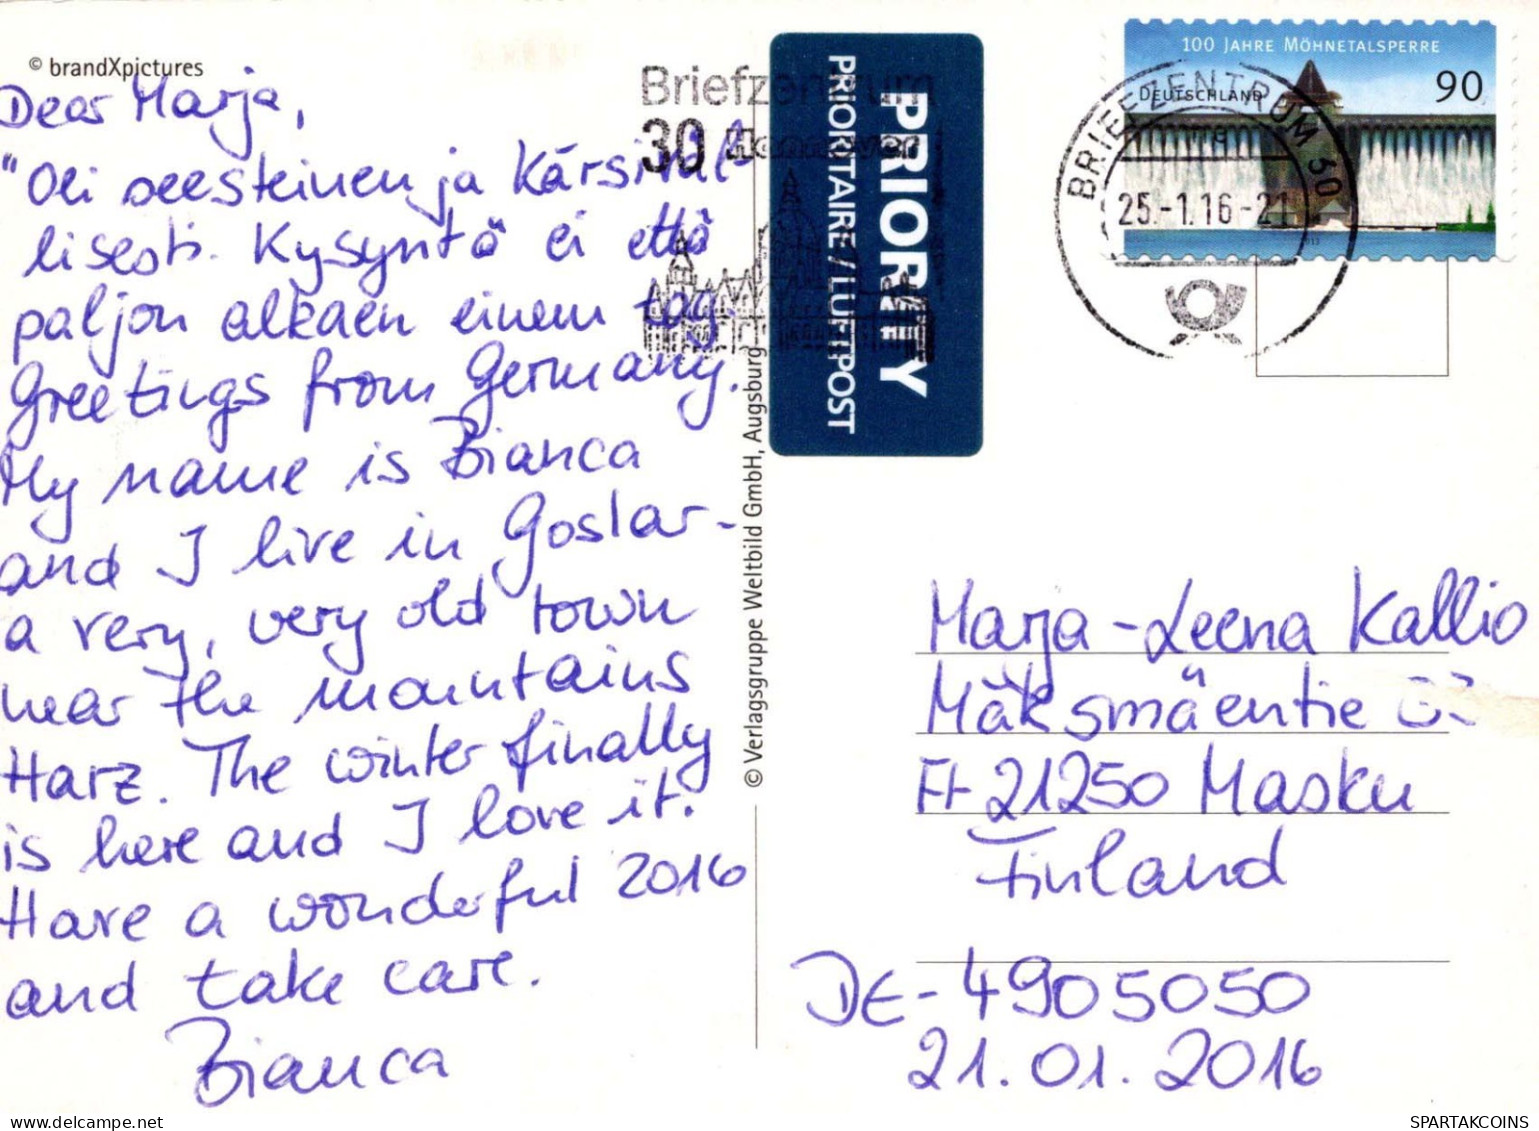 © brandXpictures
Dear Marja,
"Oli seesteinen ja Kärsiväl-
lisesti. Kysyntö ei että
paljon alkaen einem tag.
Greetings from Germany.
My name is Bianca
and I live in Goslar-
a very, very old town
near the mountains
Harz. The winter finally
is here and I love it.
Have a wonderful 2016
and take care.
Bianca
Briefzentrum
30 Hannover
© Verlagsgruppe Weltbild GmbH, Augsburg
PRIORITY
PRIORITAIRE/LUFTPOST
100 JAHRE MÖHNETALSPERRE
DEUTSCHLAND 90
BRIEFZENTRUM 30
25.-1.16-21
Marja-Leena Kallio
Mäksmäentie
FI-21250 Masku
Finland
DE-4905050
21.01.2016
SPARTAKCOINS